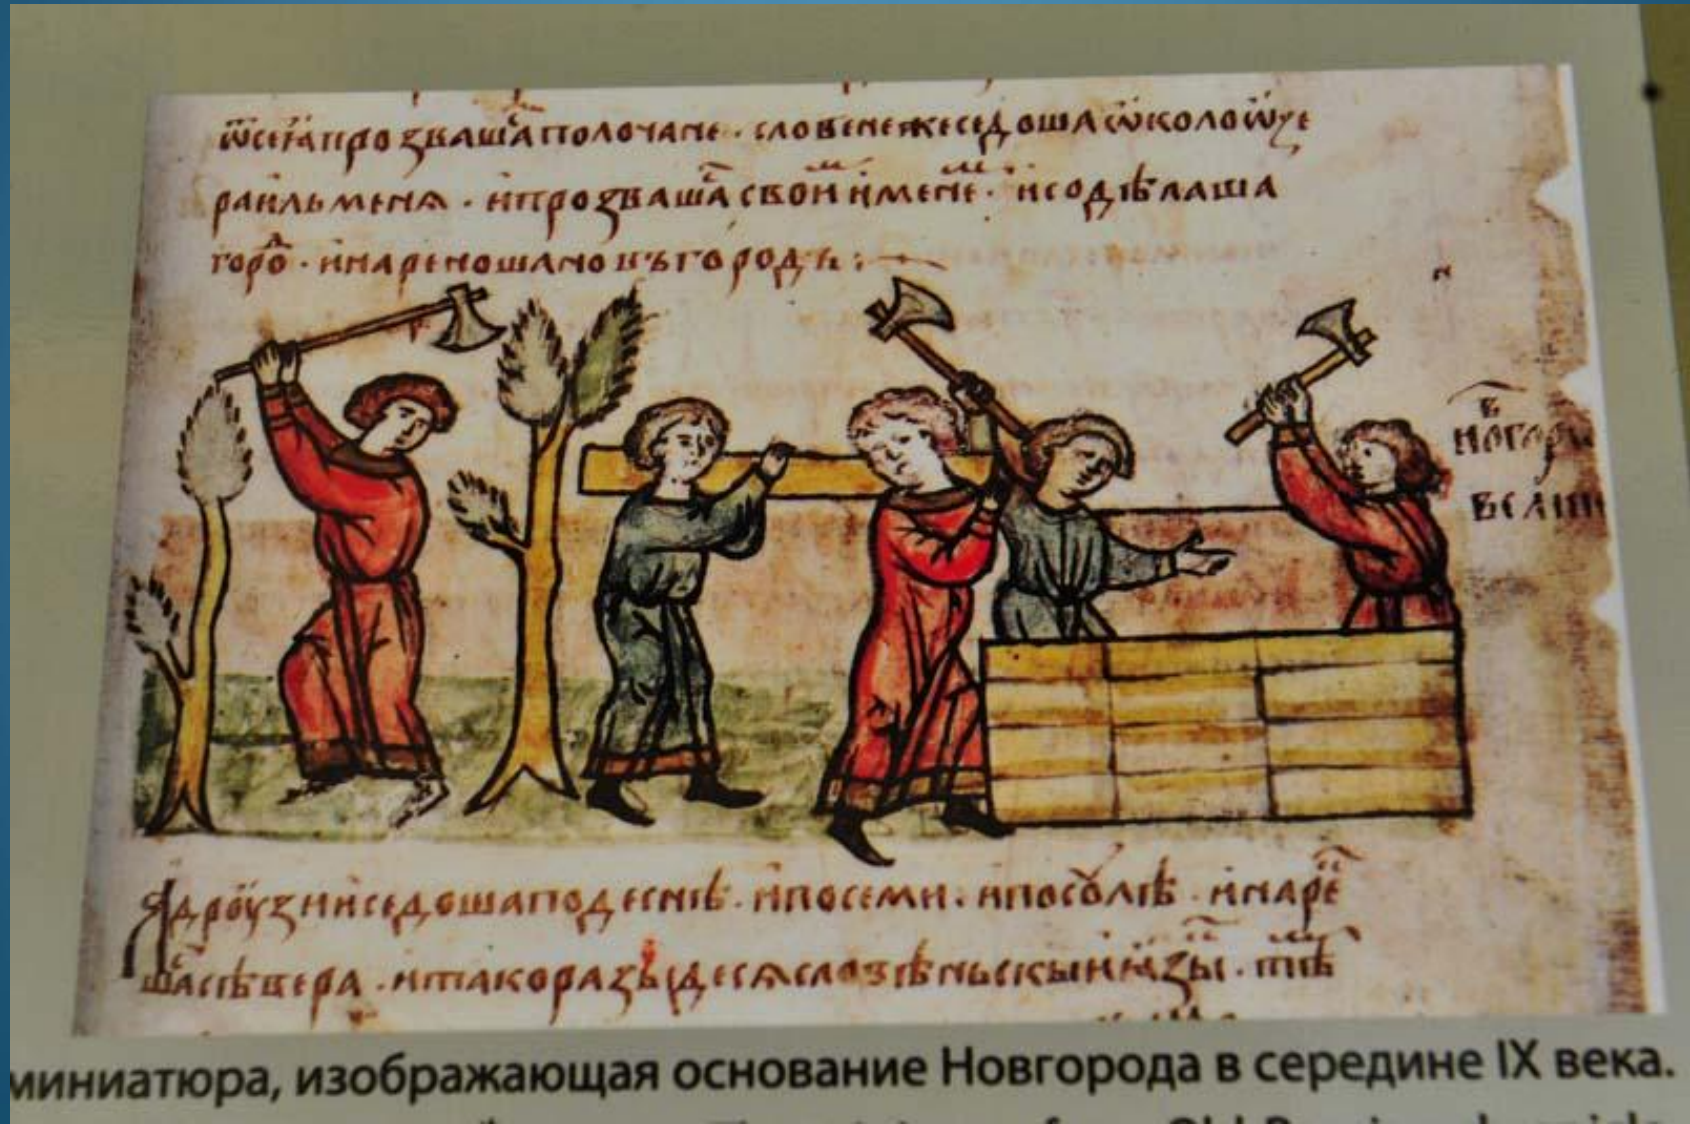 ѿ сеꙗ прозвашаⷭ҇ полочане · словенежеседоша ѡколо ѡзе
раильменя · ипрозвашаⷭ҇ своиⷨ имене · исодѣлаша
гороⷣ · инарекоша новъгородъ :
в
новгоро
вели
Адроузии седоша подеснѣ · ипосеми · ипосулѣ · инаре
шаⷭ҇ сѣвера · итако разъидеся словѣньскыи ꙗзы · тѣ
миниатюра, изображающая основание Новгорода в середине IX века.